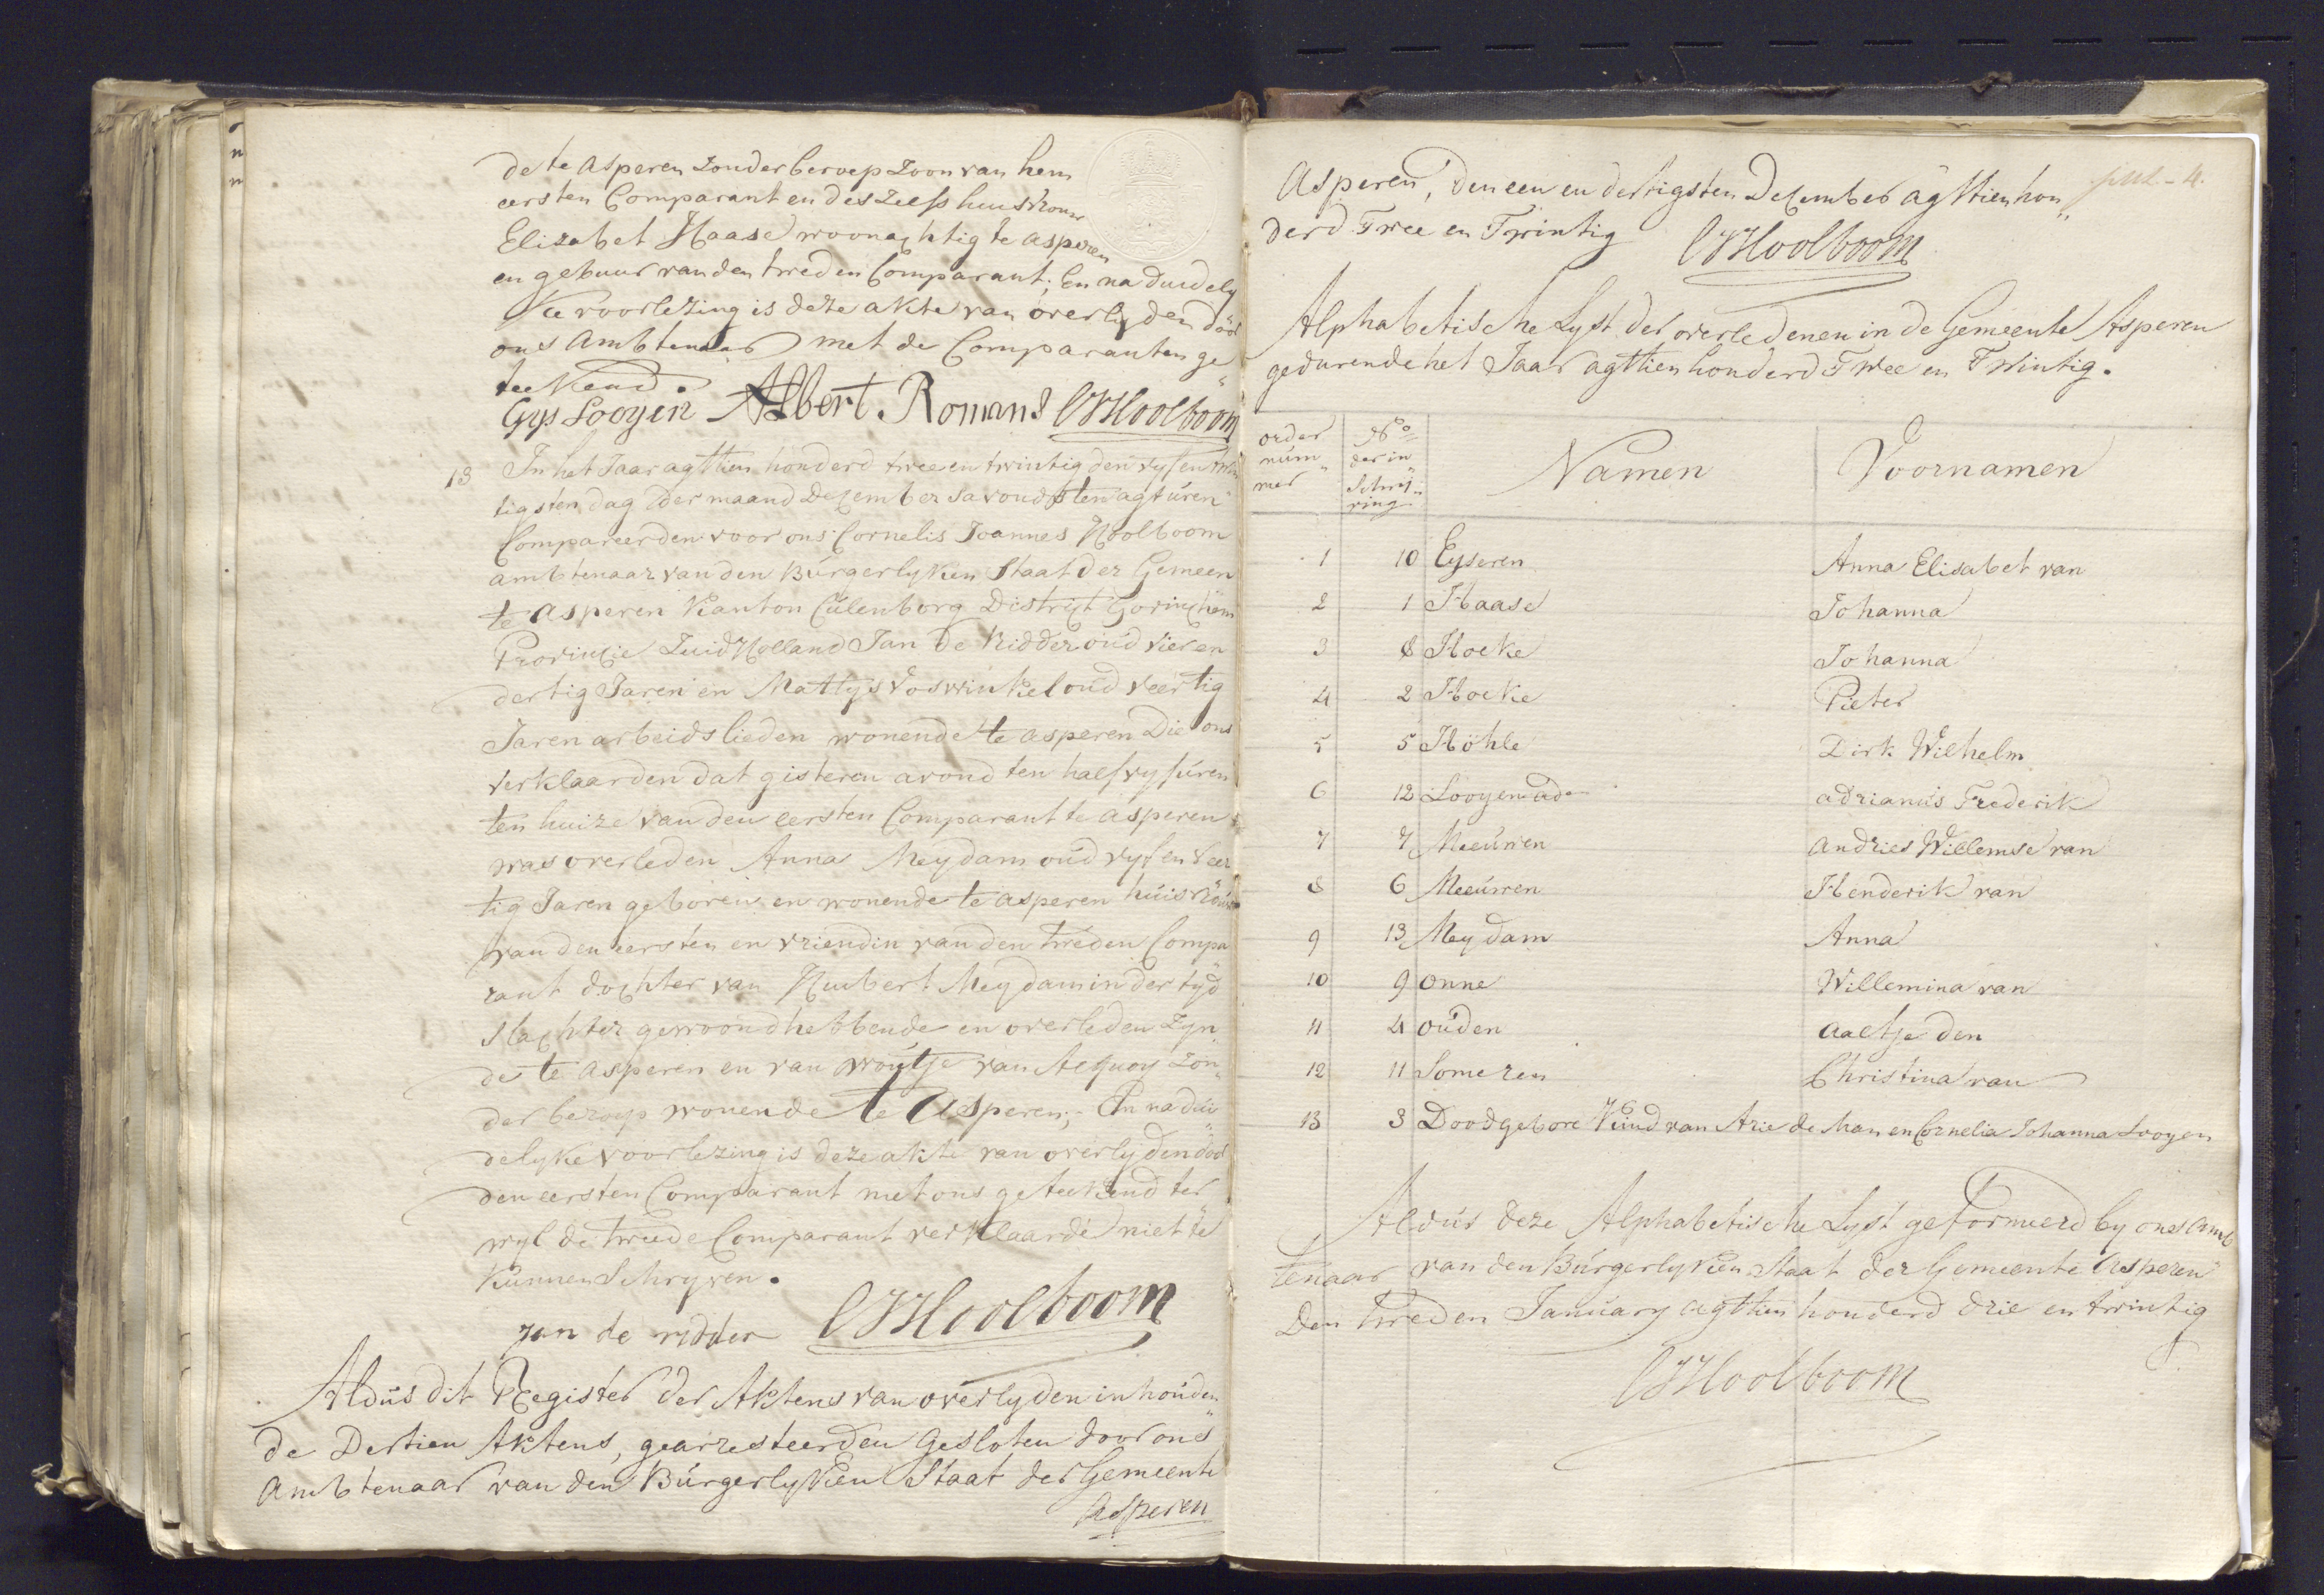 de te Asperen zonder beroep zoon van hem
eersten Comparant en des zelfs huisvrouw
Elizabet Haase woonachtig te asperen
en gebuur van den tweeden Comparant; En na duidely
ke voorlezing is deze akte van overlyden door
ons Ambtenaar met de Comparanten ge„
teekend.
Gys Looyen Albert Romans CJHoolboom
13 In het Jaar agttien honderd twee en twintig den vyf en twin
tigsten dag der maand December savonds ten agt uren
Compareerden voor ons Cornelis Joannes Hoolboom
ambtenaar van den Burgerlyken Staat der Gemeen
te Asperen Kanton Culenborg Distrikt Gorinchem
Provincie ZuidHolland Jan de Ridder oud vier en
dertig Jaren en Mattys Voswinkel oud veertig
Jaren arbeidslieden wonende te asperen Die ons
verklaarden dat gisteren avond ten half vyf uren
ten huize van den eersten Comparant te asperen
was overleden Anna Meydam oud vyf en veer
tig Jaren geboren en wonende te asperen huisvrouw
van den eersten en vriendin van den tweden Compa„
rant dochter van Huibert Meydam in der tyd
slachter gewoond hebbende en overleden zyn„
de te Asperen en van Woutje van Acquoy zon„
der beroep wonende te Asperen; En na dui„
delyke voorlezing is deze akte van overlyden door
den eersten Comparant met ons geteekend ter„
wyl de tweede Comparant verklaarde niet te
kunnen Schryven.
jan de ridder CJHoolboom
Aldus dit Register der Aktens van overlyden inhouden„
de Dertien Aktens, gearresteerd en gesloten door ons
Ambtenaar van den Burgerlyken Staat der Gemeente
Asperen
Asperen, den een en dertigsten December agttien hon„
derd Twee en Twintig CJHoolboom
Alphabetische Lyst der overledenen in de Gemeente Asperen
gedurende het Jaar agttien honderd Twee en Twintig.
order num„ mer | No der in Schry„ ving | Namen | Voornamen
1 10 Eyseren Anna Elisabet van
2 1 Haase Johanna
3 8 Hoeke Johanna
4 2 Hoeke Pieter
5 5 Höhle Dirk Wilhelm
6 12 Looyen Adrianus Frederik
7 7 Meeuwen Andries Willemse van
8 6 Meeuwen Henderik van
9 13 Meydam Anna
10 9 Onne Willemina van
11 4 Ouden Aaltje den
12 11 Someren Christina van
13 3 Doodgebore Kind van Arie de Man en Cornelia Johanna Looyen
Aldus deze Alphabetische Lyst geformeerd by ons Amb
tenaar van den Burgerlyken Staat der Gemeente Asperen
Den tweeden January agttien honderd drie en twintig
CJHoolboom